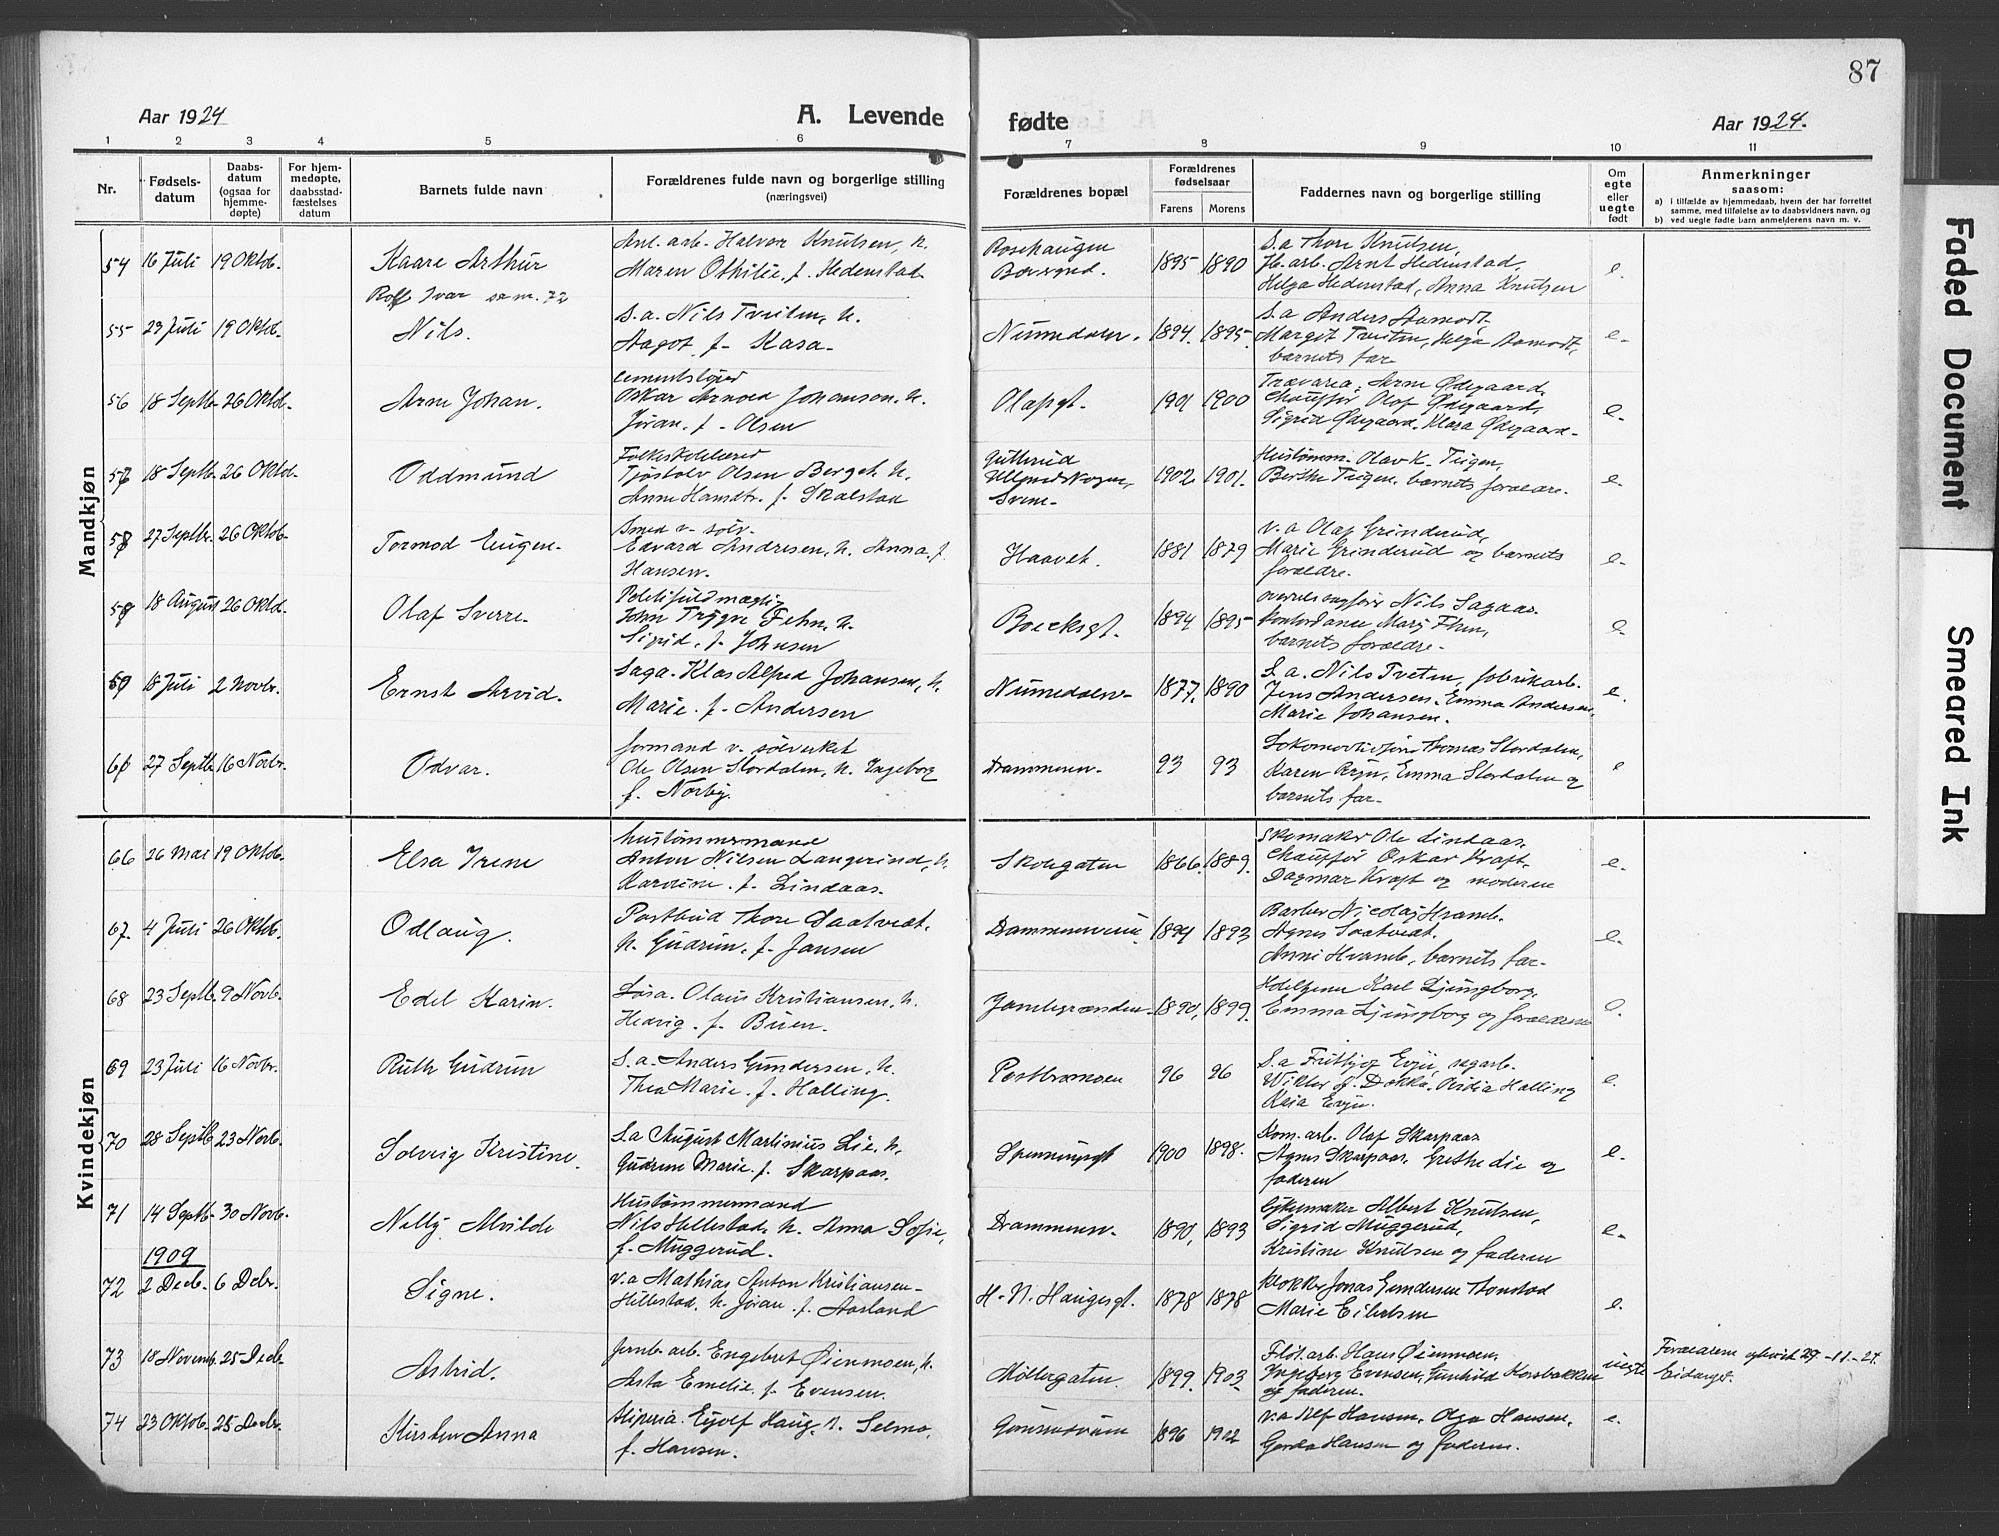 87
Aar 1924
A. Levende
fødte
Aar 1924.
1 2 3 4 5 6 7 8 9 10 11
Nr.
Fødsels-
datum
Daabs-
datum
(ogsaa for
hjemme-
døpte)
For hjem-
medøpte,
daabsstad-
fæstelses
datum
Barnets fulde navn
Forældrenes fulde navn og borgerlige stilling
(næringsvei)
Forældrenes bopæl
Forældrenes
fødselsaar
Farens Morens
Faddernes navn og borgerlige stilling
Om
egte
eller
uegte
født
Anmerkninger
saasom:
a) i tilfælde av hjemmedaab, hvem der har forrettet
samme, med tilføielse av to daabsvidners navn, og
b) ved uegte fødte barn anmelderens navn m. v.
Mandkjøn
54 16 Juli 19 Oktob.
Kaare Arthur
Anl. arb. Halvor Knutsen, h.
Maren Othilie, f. Hedenstad
Rosehaugen
1895 1890
S.a Thore Knutsen,
Jb. arb. Arnt Hedenstad,
Helga Hedenstad, Anna Knutsen
e.
Rolf Ivar se nr. 72
55 23 Juli 19 Oktd.
Nils.
S.a. Nils Tveiten, h.
Aagot f. Kasa
Numedalen.
1894. 1895.
S.a Anders Aamodt,
Margit Tveiten, Helga Aamodt,
barnets far
e.
56 18 Septb. 26 Oktob.
Arne Johan.
Oskar Arnold Johansen, h.
Jøran, f. Olsen
Olafsgt.
1901 1900
Arne Ødegaard,
Chauffør Olaf Ødegaard,
Sigrid Ødegaard, Klara Ødegaard
e.
57 18 Septb. 26 Oktob.
Oddmund
Folkeskolelærer
Tjøstolv Olsen Berget h.
f. Skalstad
Svene
1902 1901.
Hustømm. Olav K. Teigen,
Berthe Teigen, barnets forældre.
e.
58 27 Septbr. 26 Oktob.
Tormod Eugen.
Smed v. sølv.
Edvard Andresen, h. Anna, f.
Hansen.
Haavet.
1881 1879
v.a Olaf Grinderud,
Marie Grinderud og barnets
forældre.
e.
58 18 August 26 Oktb.
Olaf Sverre.
Politifuldmægtig
John Trygve Fehn, h.
Sigrid, f. Johnsen
Boecksgt.
1894 1895
Nils Sagaas
barnets forældre.
e.
59 18 Juli 2 Novbr.
Ernst Arvid.
Saga. Klas Alfred Johansen, h.
Marie f. Andersen
Numedalen
1877. 1890
S. a. Nils Tveten, fabrikarb.
Jens Andersen, Emma Andersen,
Marie Johansen.
e.
60 27 Septb. 16 Novbr.
Odvar.
formand v. sølvverket
Ole Olsen Stordalen, h. Ingeborg
f. Norby.
Drammensv.
93 93
Thomas Stordalen,
Emma Stordalen og
barnets far.
e
Kvindekjøn
66 26 Mai 19 Oktob.
Elsa Irene
hustømmermand
Anton Nilsen Langerind, h.
Karoline, f. Lindaas.
Skolegaten
1866. 1889.
Skomaker Ole Lindaas,
Chauffør Oskar Kraft
Dagmar Kraft og moderen
e.
67. 4 Juli 26 Oktob.
Odlaug.
Postbud Thore Saatvedt,
h. Gudrun, f. Jansen
Drammensveien
1894 1893
Barber Nicolaj Hvamb.
Agnes Saatvedt.
Anni Hvamb, barnets far
e.
68 23 Septb. 9 Novb.
Edel Karin.
Olaus Kristiansen, h.
Hedvig, f. Buen.
1890, 1899.
Karl Ljungborg,
Emma Ljungborg og forældrene
e.
69 23 Juli 16 Novbr.
Ruth Gudrun
S.a. Anders Gundersen, h.
Thea Marie, f. Halling.
Postbromoen
96 96
S.a Fritjof Evju,
Dokka, Halling
Kaia Evju.
e.
70 28 Septb. 23 Novb.
Solveig Kristine.
S.a August Martinius Lie, h.
Gudrun Marie, f. Skarpaas.
1900 1898.
Kom. arb. Olaf Skarpaas
Agnes Skarpaas, Grethe Lie og
faderen
e.
71 14 Septb. 30 Novb.
Nelly Alvilde
Hustømmermand
Nils Hillestad, h. Anna Sofie,
f. Muggerud.
Drammensv.
1890, 1893
Albert Knutsen,
Sigrid Muggerud,
Kristine Knutsen og faderen
e.
1909
72 2 Decb. 6 Decbr.
Signe.
v.a Mathias Anton Kristiansen
Hillestad, h. Jøran, f. Aasland
H. N. Haugesgt.
1878 1878
Klokker Jonas Gundersen Tonstad
Marie Eilertsen
e.
73 18 Novemb. 25 Decb.
Astrid.
Jernb. arb. Engebret Øienmoen, h.
Asta Emelie, f. Evensen.
Møllergaten.
1899. 1903
Fløt. arb. Hans Øienmoen,
Ingeborg Evensen, Gunhild Korsbakken
og faderen.
uegte
Forældrene egteviet 29-11-24.
Eidanger.
74 23 Oktob. 25 Decbr.
Kirsten Anna
Eyolf Haug, h. Selma,
f. Hansen.
1896 1902
v.a Alf Hansen, Olga Hansen,
Gerda Hansen og faderen.
e.
Faded Document
Smeared Ink